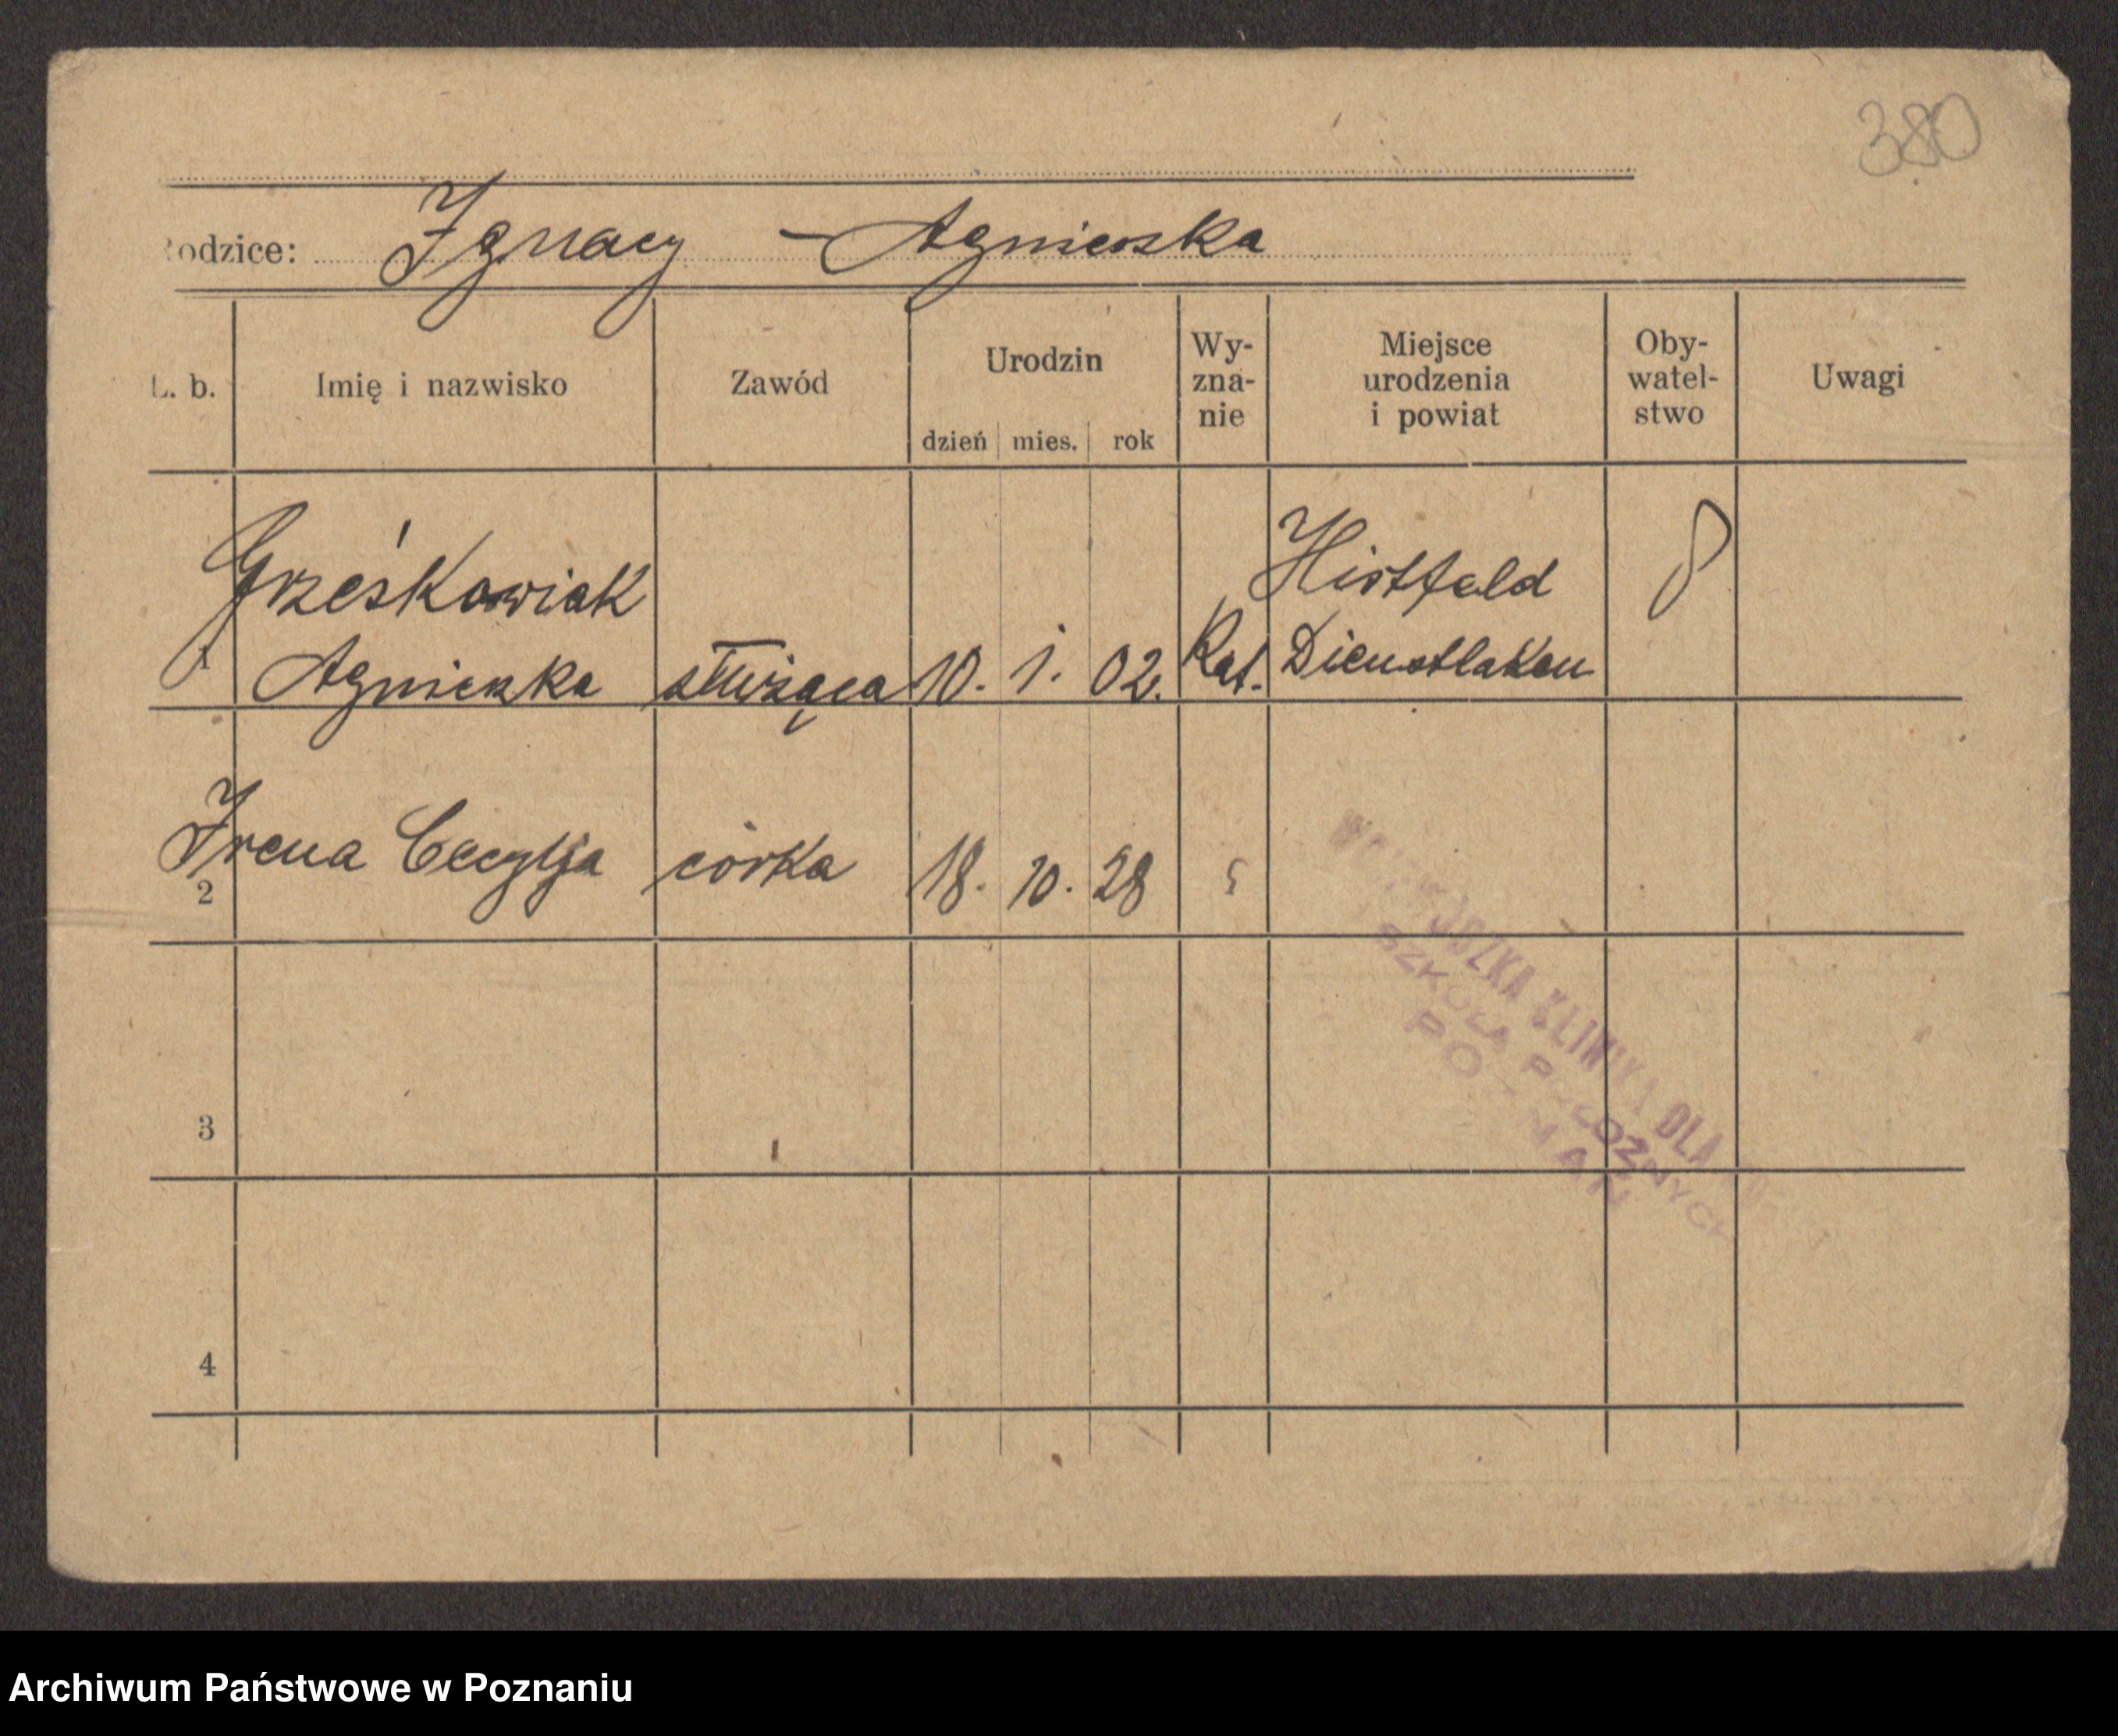 380
Rodzice: Ignacy - Agnieszka
L. b. Imię i nazwisko Zawód Urodzin dzień mies. rok Wy-zna-nie Miejsce urodzenia i powiat Oby-watel-stwo Uwagi
Grześkowiak Histfeld
1 Agnieszka służąca 10. 1. 02. Kat. Dienstlaken
Irena Cecylja córka 18. 10. 28
2
3
4
KLINIKA DLA
SZKOŁA POŁOŻNYCH
POZNAŃ
Archiwum Państwowe w Poznaniu